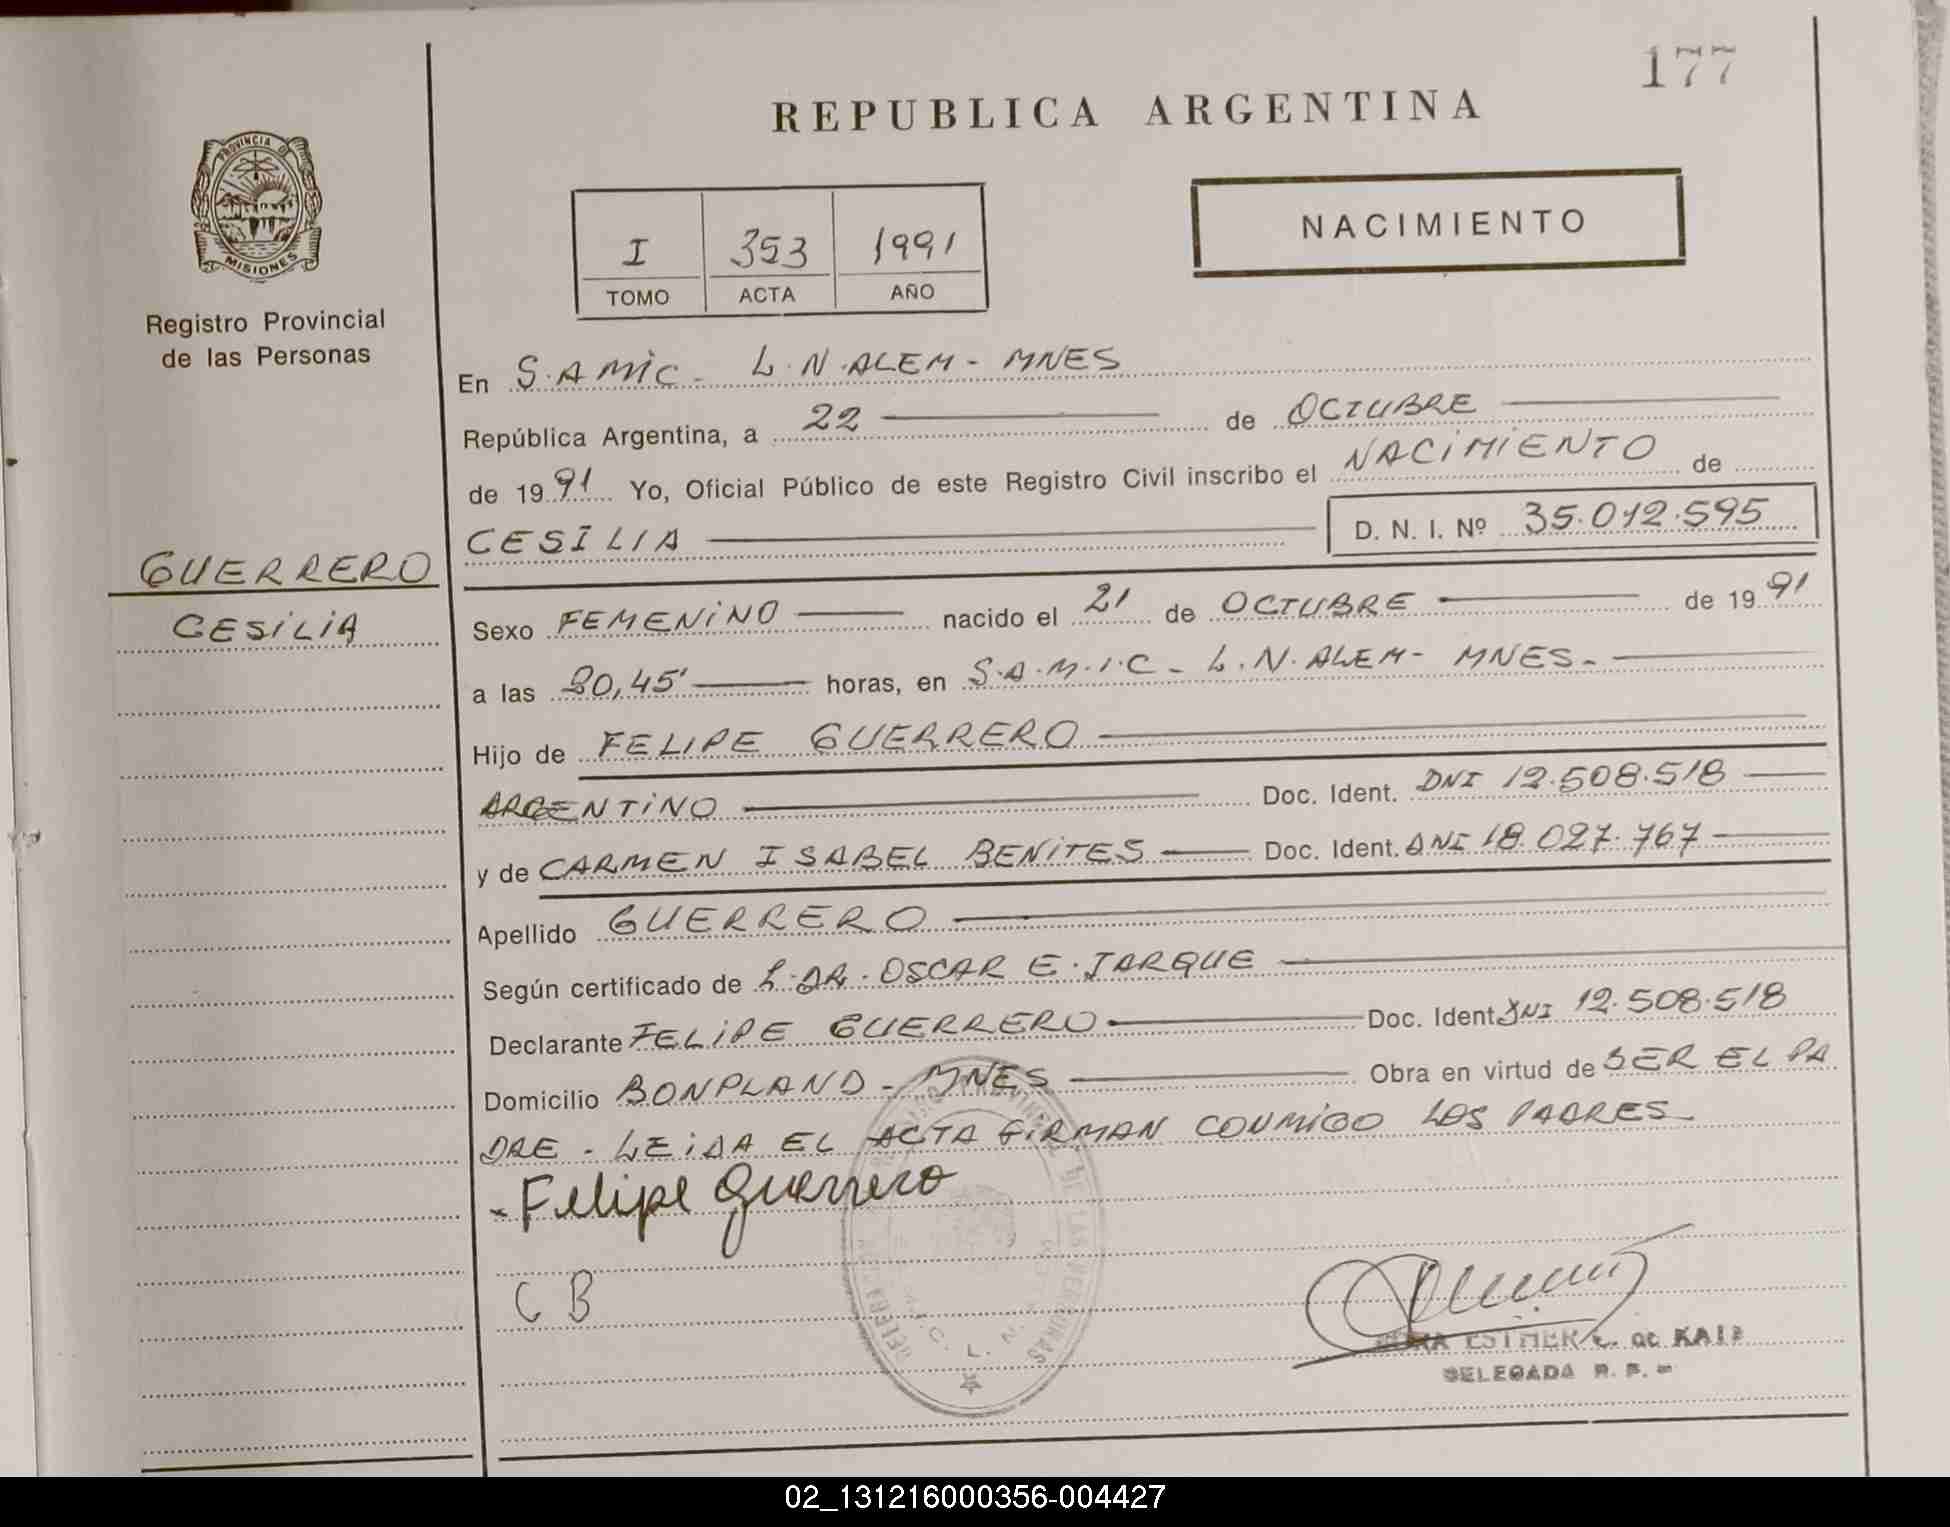 177
REPUBLICA ARGENTINA
PROVINCIA DE
MISIONES
Registro Provincial
de las Personas
I 353 1991
TOMO ACTA AÑO
NACIMIENTO
En S.AMIC- L.N.ALEM- MNES
República Argentina, a 22 de OCTUBRE
de 1991 Yo, Oficial Público de este Registro Civil inscribo el NACIMIENTO de
CESILIA D. N. I. Nº 35.012.595
GUERRERO
CESILIA
Sexo FEMENINO nacido el 21 de OCTUBRE de 1991
a las 20,45' horas, en S.A.M.I.C- L.N.ALEM- MNES-
Hijo de FELIPE GUERRERO
ARGENTINO Doc. Ident. DNI 12.508.518
y de CARMEN ISABEL BENITES Doc. Ident. DNI 18.027.767
Apellido GUERRERO
Según certificado de DR. OSCAR E. JARQUE
Declarante FELIPE GUERRERO Doc. Ident DNI 12.508.518
Domicilio BONPLAND - MNES Obra en virtud de SER EL PA
DRE - LEIDA EL ACTA FIRMAN CONMIGO LOS PADRES-
- Felipe Guerrero
C B
ESTHER
DELEGADA R. P.
02_131216000356-004427